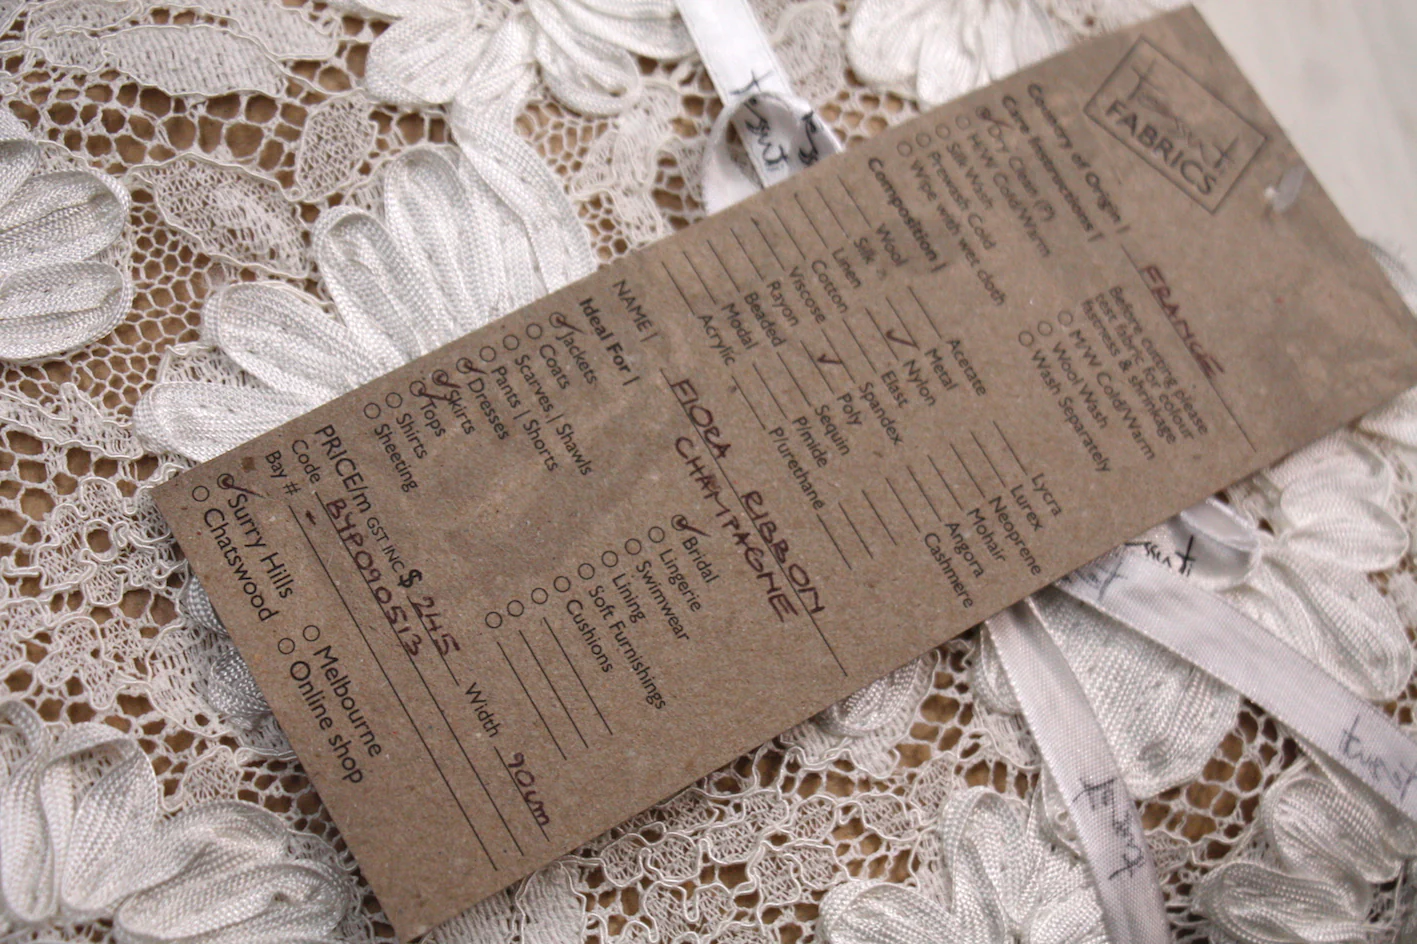 Tessuti
FABRICS
Country of Origin | FRANCE
Care Instructions |
Dry Clean (P)
H/W Cold/Warm
Silk Wash
Prewash Cold
Wipe with wet cloth
Before cutting please
test fabric for colour
fastness & shrinkage
M/W Cold/Warm
Wool Wash
Wash Separately
Composition |
Wool
Silk
Linen
Cotton
Viscose
Rayon
Beaded
Modal
Acrylic
Acetate
Metal
✓ Nylon
Elast
Spandex
✓ Poly
Sequin
P/mide
P/urethane
Lycra
Lurex
Neoprene
Mohair
Angora
Cashmere
NAME | FIORA RIBBON
CHAMPAGNE
Ideal For |
✓ Jackets
Coats
Scarves | Shawls
Pants | Shorts
✓ Dresses
✓ Skirts
✓ Tops
Shirts
Sheeting
✓ Bridal
Lingerie
Swimwear
Lining
Soft Furnishings
Cushions
PRICE/m GST INC $ 245 Width 90cm
Code BYP090513
Bay # -
✓ Surry Hills
Chatswood
Melbourne
Online shop
Tessuti
Tessuti
Tessuti